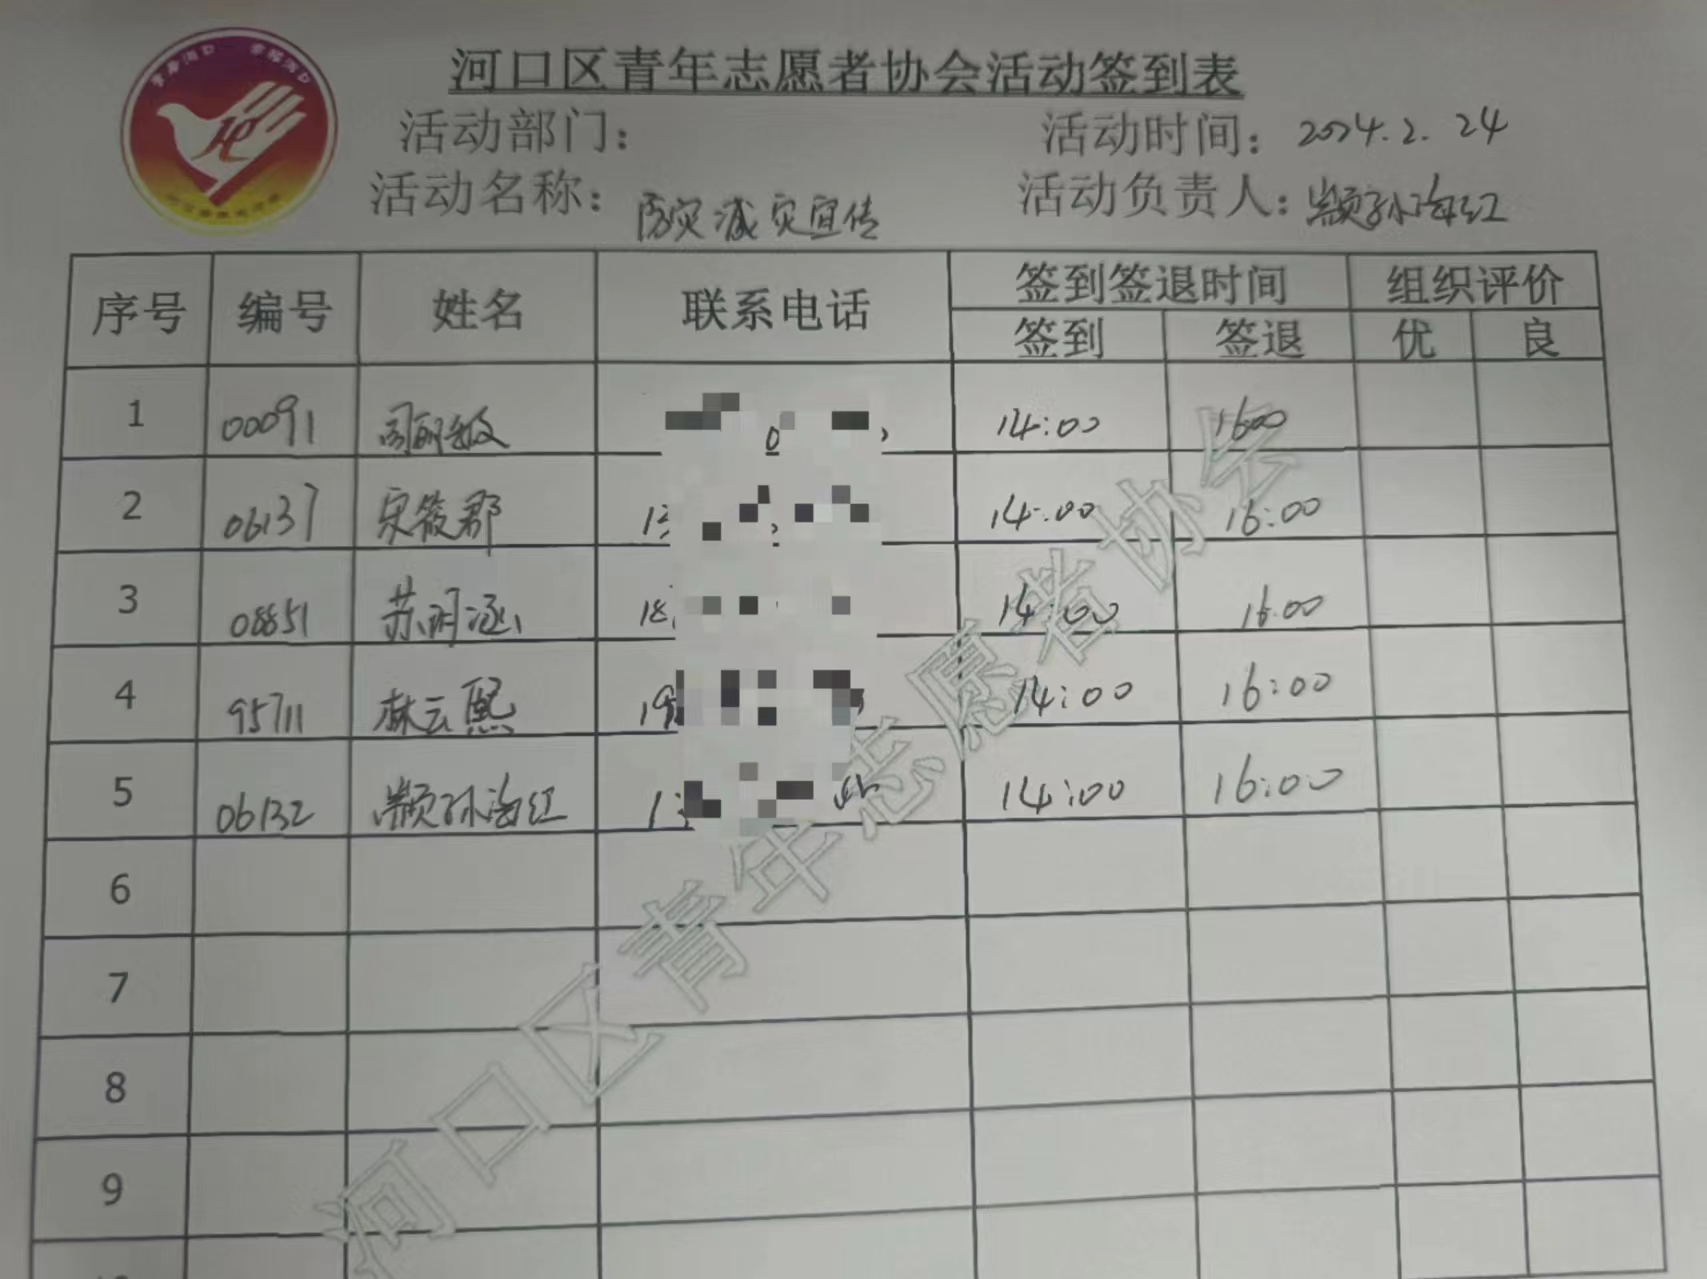 河口区青年志愿者协会活动签到表
活动部门： 活动时间：2024.2.24
活动名称：防灾减灾宣传 活动负责人：颛孙海红
序号 编号 姓名 联系电话 签到签退时间 组织评价
签到 签退 优 良
1 00091 14:00 1600
2 06137 宋筱郡 14:00 16:00
3 08851 苏明涵 18 14:00 16:00
4 95711 林云熙 19 14:00 16:00
5 06132 颛孙海红 14:00 16:00
6
7
8
9
河口区青年志愿者协会